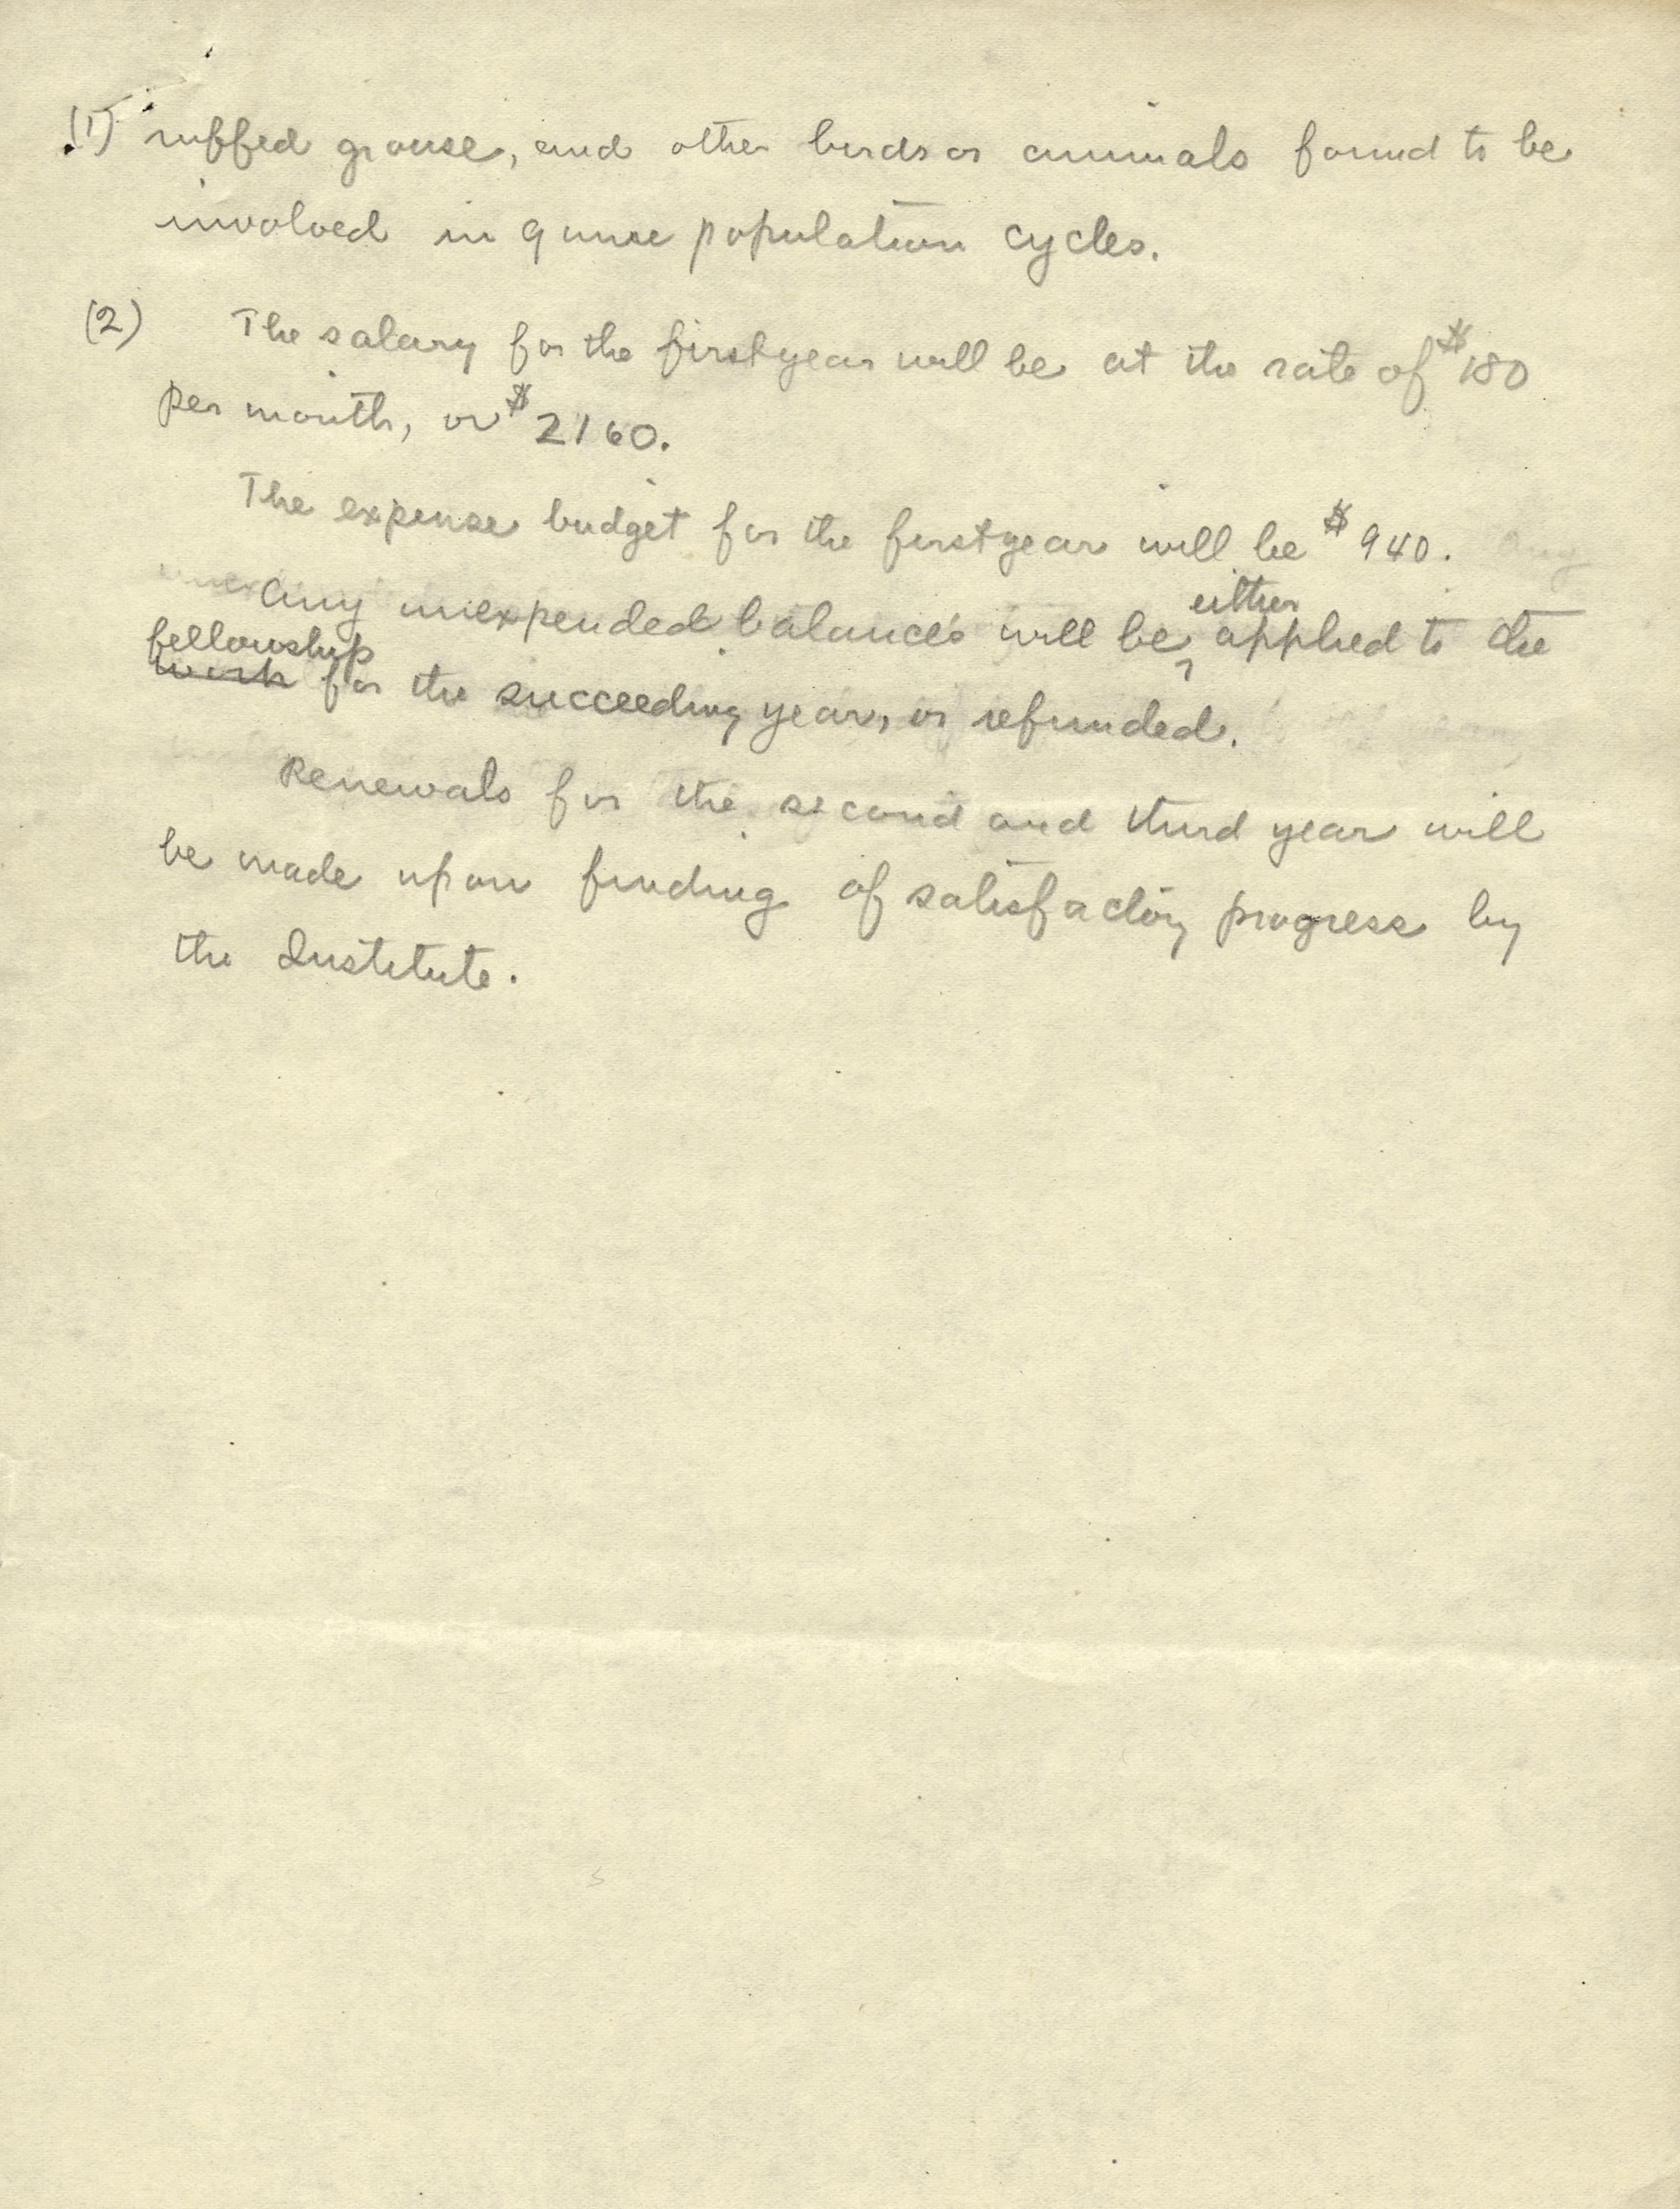 (1) ruffed grouse, and other birds or animals found to be
involved in game population cycles.
(2) The salary for the first year will be at the rate of $180
per month, or $2160.
The expense budget for the first year will be $940.
Any unexpended balances will be either applied to the
fellowship
work for the succeeding year, or refunded.
Renewals for the second and third year will
be made upon finding of satisfactory progress by
the Institute.